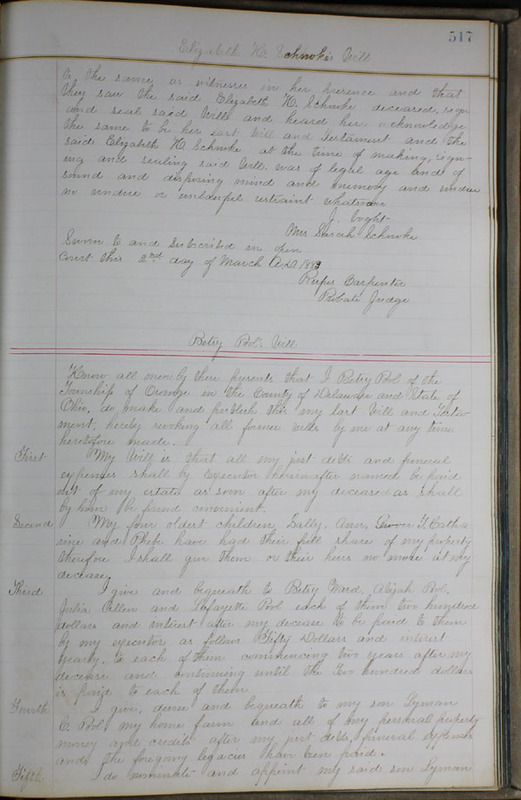 517
Elizabeth H. Schnoke's Will
to the same as witnesses in her presence and that
they saw the said Elizabeth H. Schnoke deceased, sign
and seal said Will and heard her acknowledge
the same to be her last Will and Testament and the
said Elizabeth H. Schnoke at the time of making, sign-
ing and sealing said Will was of legal age and of
sound and disposing mind and memory and under
no undue or unlawful restraint whatever
J. Voght
Mrs Sarah Schnoke
Sworn to and Subscribed in open
Court this 2nd day of March A.D. 1883
Rufus Carpenter
Probate Judge
Betsy Pool's Will
Know all men by these presents that I Betsy Pool of the
Township of Orange in the County of Delaware and State of
Ohio, do make and publish this my last Will and Testa-
ment, hereby revoking all former wills by me at any time
heretofore made.
First My Will is that all my just debts and funeral
expenses shall by Executor hereinafter named be paid
out of my estate as soon after my decease as shall
by him be found convenient.
Second My four oldest children, Sally, Ann, Catha
rine and Phebe have had their full share of my property
therefore I shall give them or their heirs no more at my
decease.
Third I give and bequeath to Betsy Ward, Abijah Pool,
Julia Allen and Lafayette Pool each of them two hundred
dollars and interest after my decease to be paid to them
by my executor as follows Fifty Dollars and interest
yearly, to each of them commencing two years after my
decease and continuing until the two hundred dollars
is paid to each of them
Fourth I give, devise and bequeath to my son Lyman
C. Pool my home farm and all of my personal property
money and credits after my just debts, funeral expenses
and the foregoing legacies have been paid.
Fifth I do nominate and appoint my said son Lyman